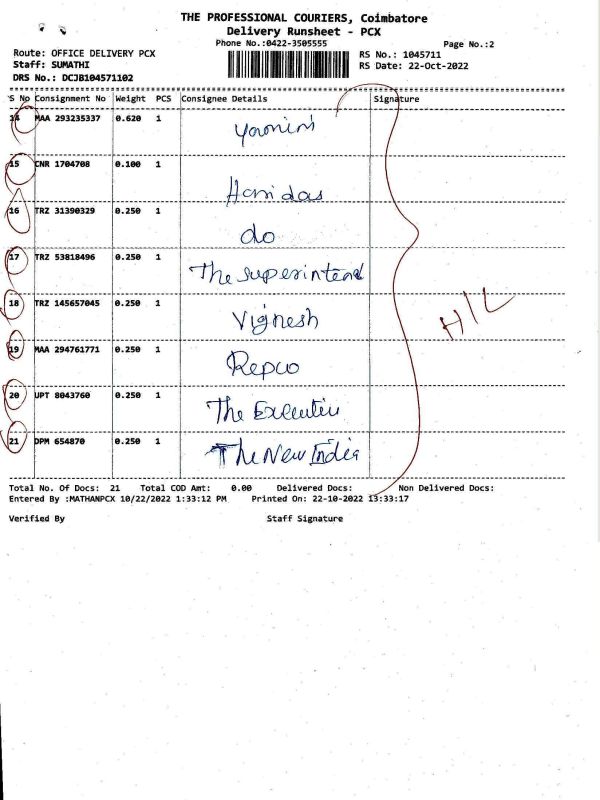 THE PROFESSIONAL COURIERS, Coimbatore
Delivery Runsheet - PCX
Phone No.:0422-3505555
Page No.:2
Route: OFFICE DELIVERY PCX
RS No.: 1045711
Staff: SUMATHI
RS Date: 22-Oct-2022
DRS No.: DCJB104571102
S No Consignment No Weight PCS Consignee Details Signature
14 MAA 293235337 0.620 1
15 CNR 1704708 0.100 1 Haridas
16 TRZ 31390329 0.250 1 do
17 TRZ 53818496 0.250 1 The Superintend
18 TRZ 145657045 0.250 1 Vignesh
19 MAA 294761771 0.250 1 Repco
20 UPT 8043760 0.250 1 The Executiv
21 DPM 654870 0.250 1 The New India
H/L
Total No. Of Docs: 21 Total COD Amt: 0.00 Delivered Docs: Non Delivered Docs:
Entered By :MATHANPCX 10/22/2022 1:33:12 PM Printed On: 22-10-2022 13:33:17
Verified By Staff Signature